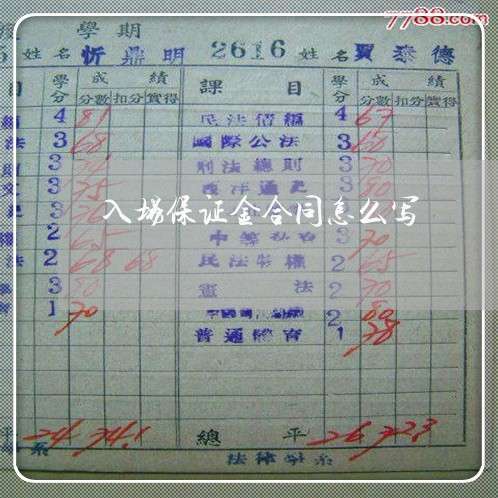 7788.com
學期
5 姓名 忻鼎明 2616 姓名 賈泰德
目 學分 成績 課目 學分 成績
分數 扣分 實得 分數 扣分 實得
4 81 民法債編 4 67
法 3 68 國際公法 3 60
3 刑法總則 3 70
3 75 西洋通史 3 80
入场保证金合同怎么写
權 2 65 3 70
法 2 68 68 民法物權 2 65
3 80 憲法 2 70
1 70 2 80
普通體育 1 78
平 24 74.1 總平 26 72.3
系 法律學系